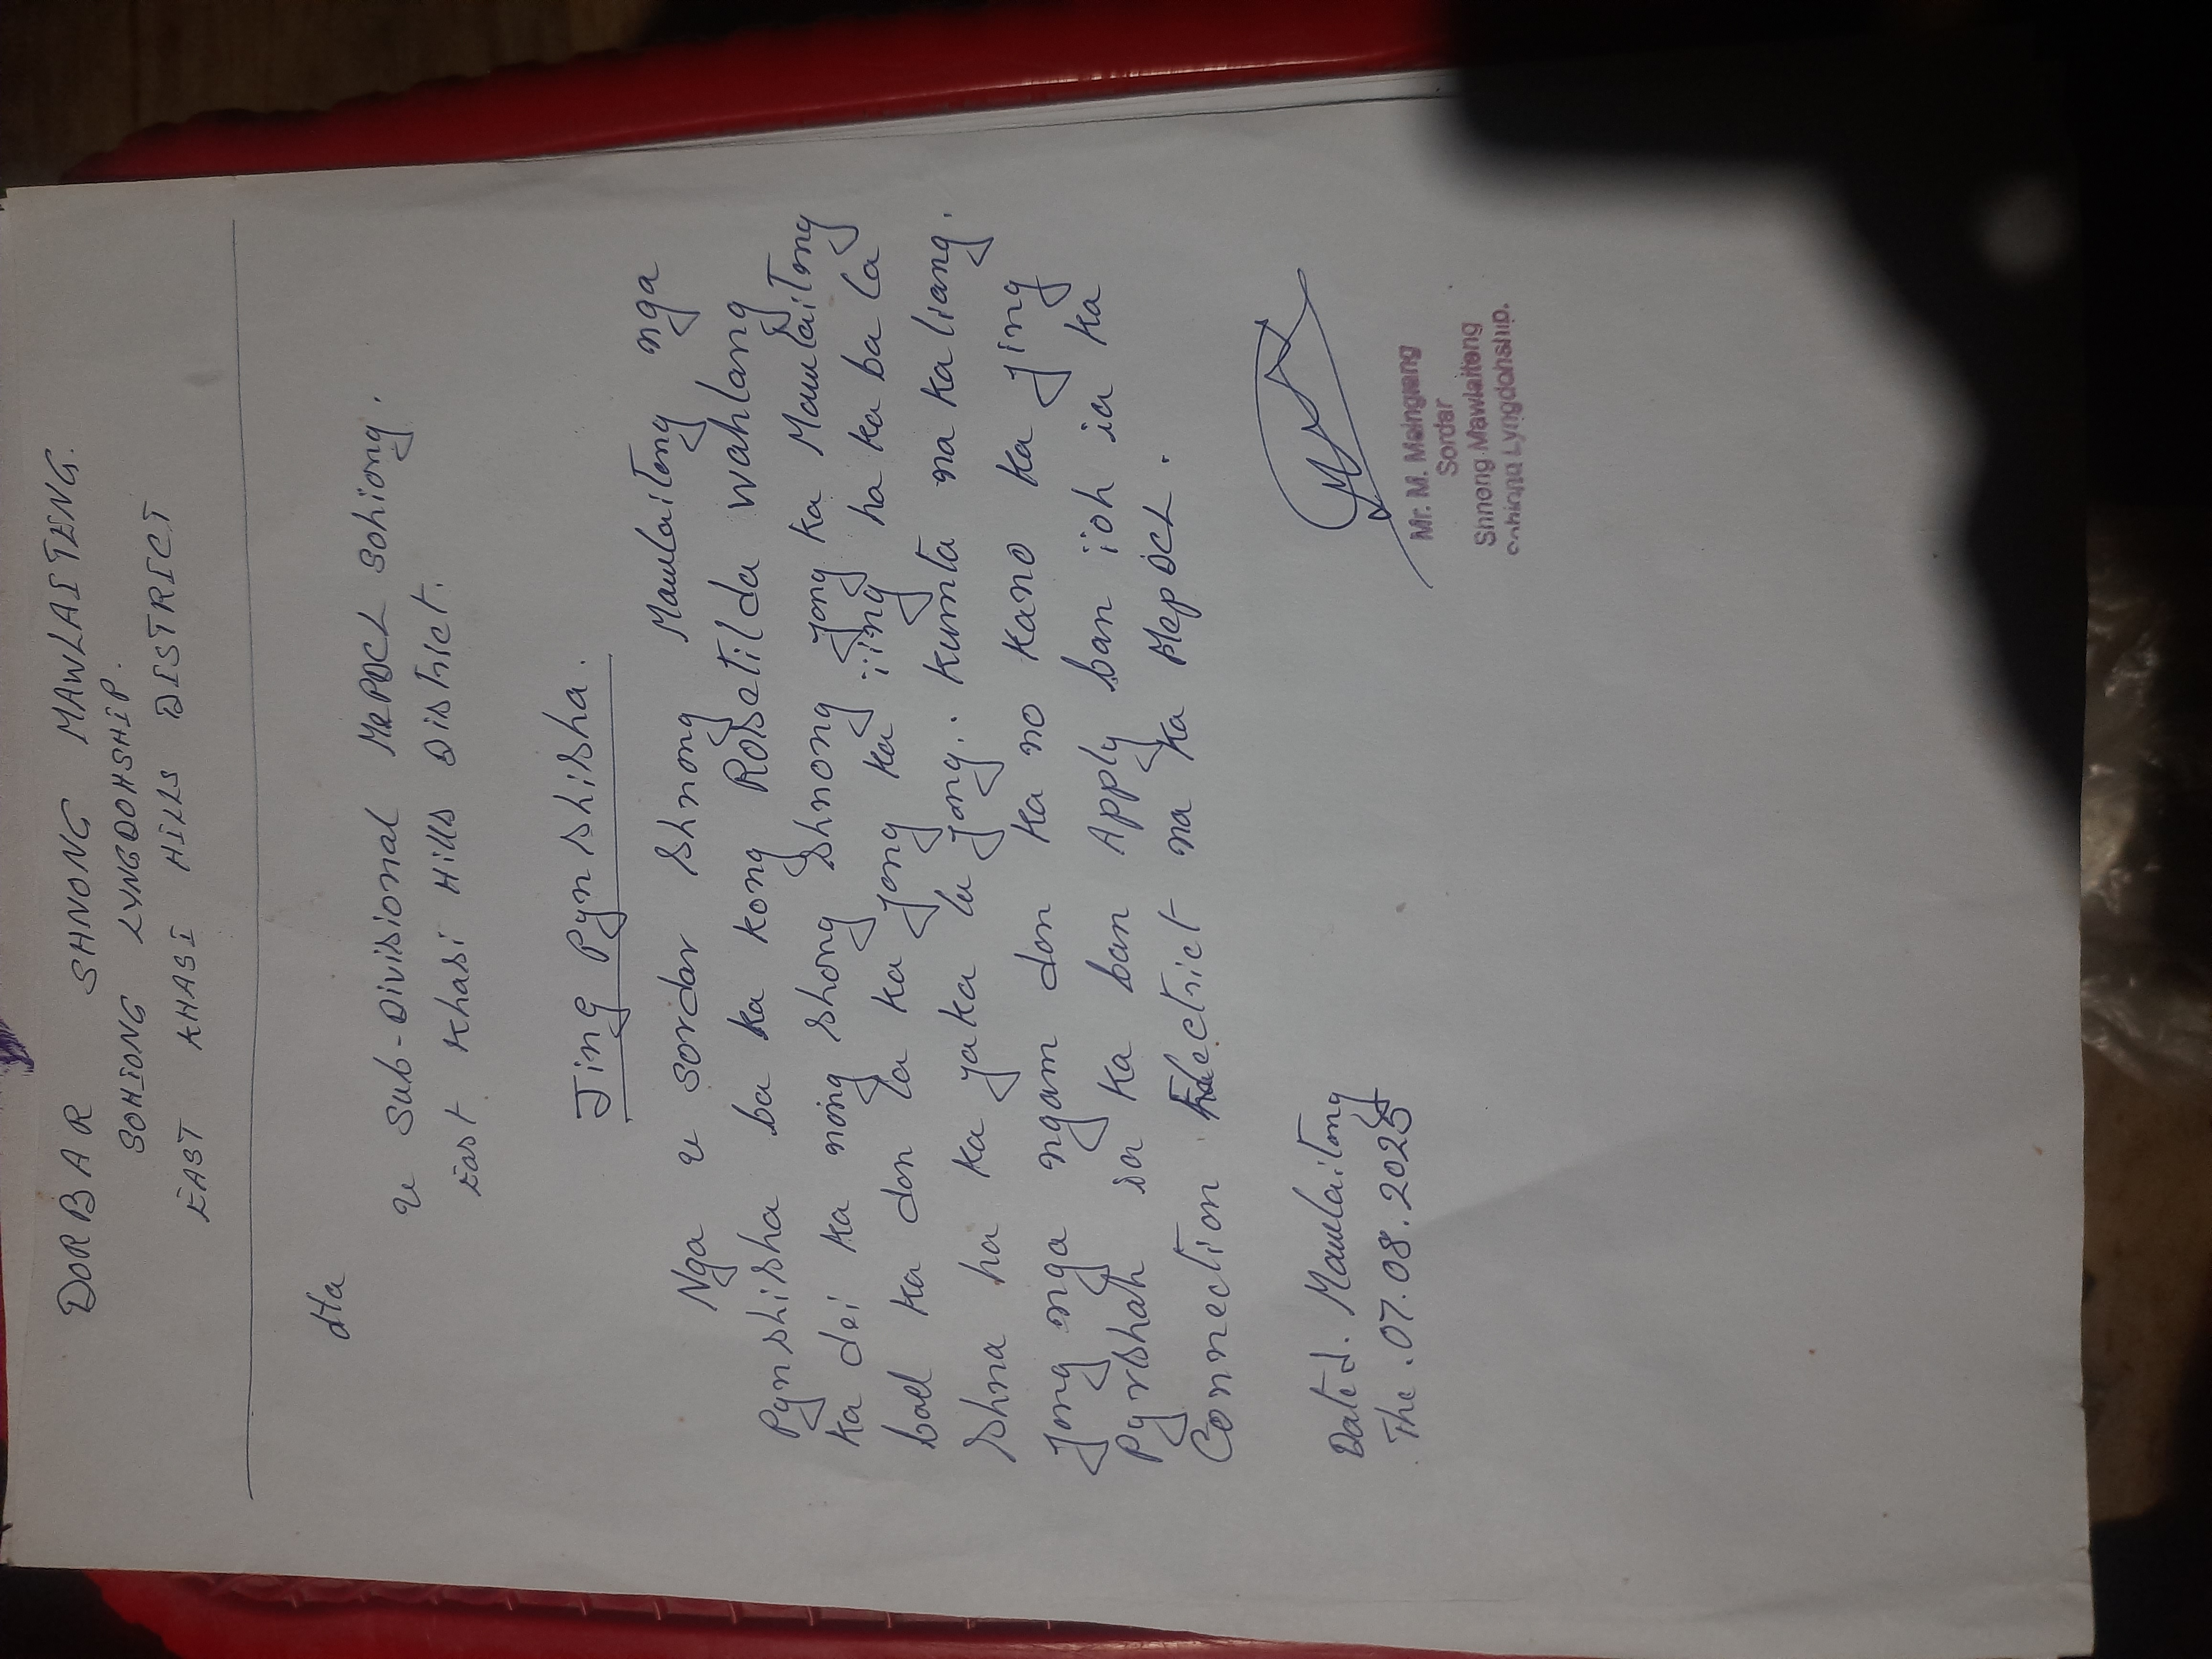 DORBAR SHNONG MAWLAITENG.
SOHIONG LYNGDOHSHIP.
EAST KHASI HILLS DISTRICT
Ha
U Sub-Divisional MePDCL Sohiong.
East Khasi Hills District.
Jing Pynshisha.
Nga U Sordar Shnong Mawlaiteng nga
Pynshisha ba ka kong Rosetilda Wahlang
ka dei ka nong shong shnong jong ka Mawlaiteng
bad ka don la ka jong ka iing ha kaba la
shna ha ka jaka la jong. Kumta na ka liang
jong nga ngam don ka no kano ka jing
Pyrshah ia ka ban Apply ban ioh ia ka
Connection Electrict na ka MePDCL.
Dated. Mawlaiteng
The. 07.08.2025
Mr. M. Malngiang
Sordar
Shnong Mawlaiteng
Sohiong Lyngdohship.